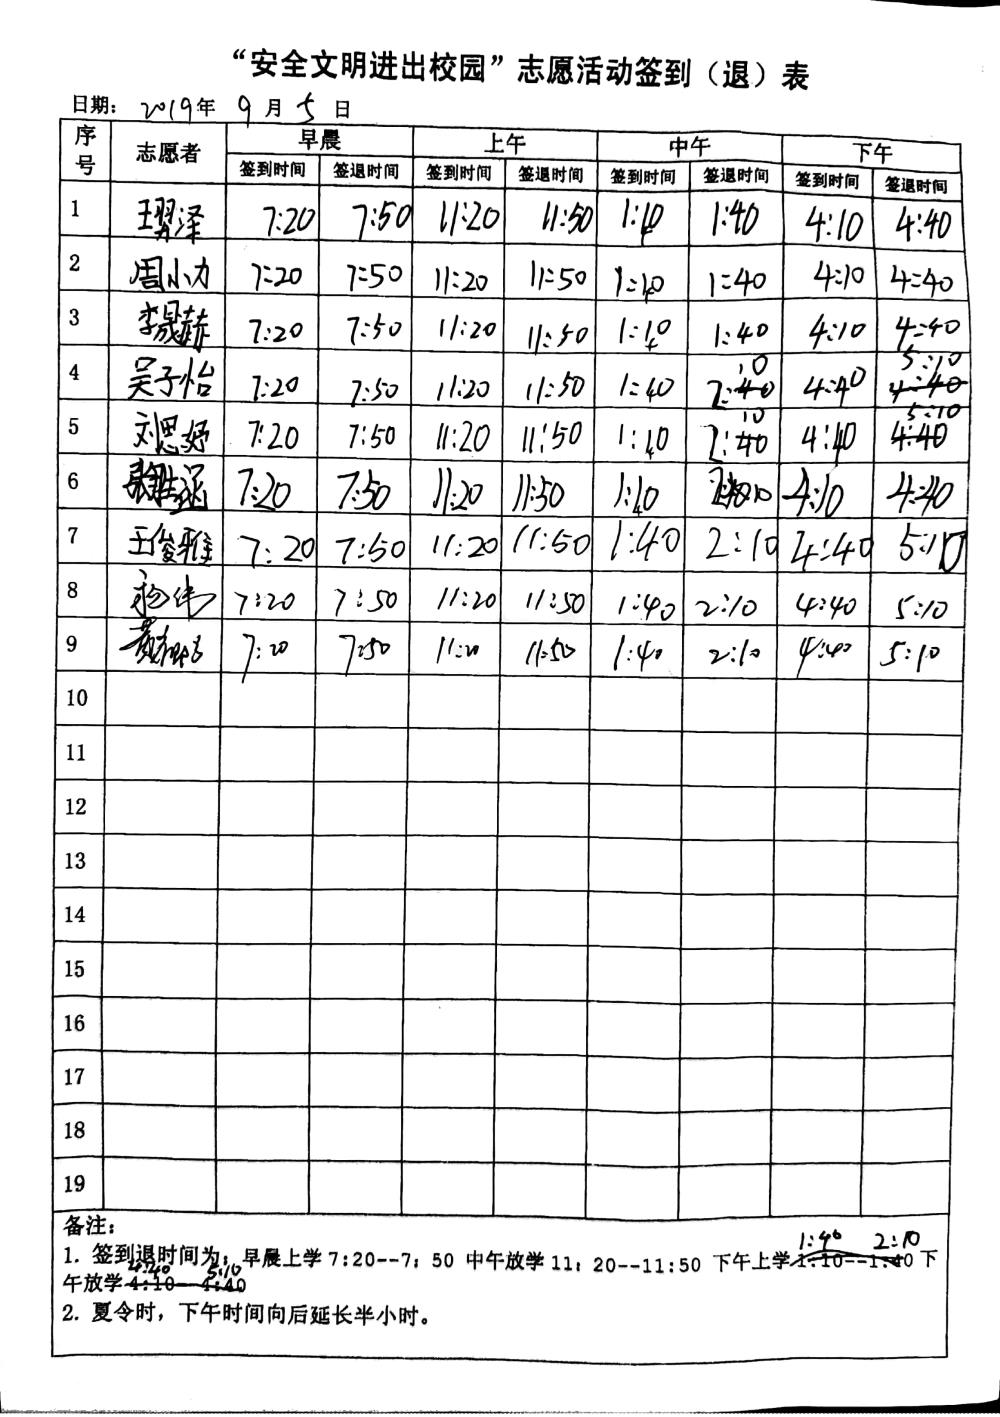 “安全文明进出校园”志愿活动签到（退）表
日期： 2019年 9 月 5 日
序号 志愿者 早晨 上午 中午 下午
签到时间 签退时间 签到时间 签退时间 签到时间 签退时间 签到时间 签退时间
1 王羿泽 7:20 7:50 11:20 11:50 1:10 1:40 4:10 4:40
2 周小力 7:20 7:50 11:20 11:50 1:10 1:40 4:10 4:40
3 李晟赫 7:20 7:50 11:20 11:50 1:10 1:40 4:10 4:40
4 吴子怡 7:20 7:50 11:20 11:50 1:40 2:10 4:40 5:10
5 刘思妤 7:20 7:50 11:20 11:50 1:40 2:10 4:40 5:10
6 7:20 7:50 11:20 11:50 1:10 4:10 4:40
7 王俊雅 7:20 7:50 11:20 11:50 1:40 2:10 4:40 5:10
8 杨伟 7:20 7:50 11:20 11:50 1:40 2:10 4:40 5:10
9 7:20 7:50 11:20 11:50 1:40 2:10 4:40 5:10
10
11
12
13
14
15
16
17
18
19
备注：
1:40 2:10
1. 签到退时间为：早晨上学 7:20--7：50 中午放学 11：20--11:50 下午上学 1:10--1:40 下
4:40 5:10
午放学 4:10--4:40
2. 夏令时，下午时间向后延长半小时。